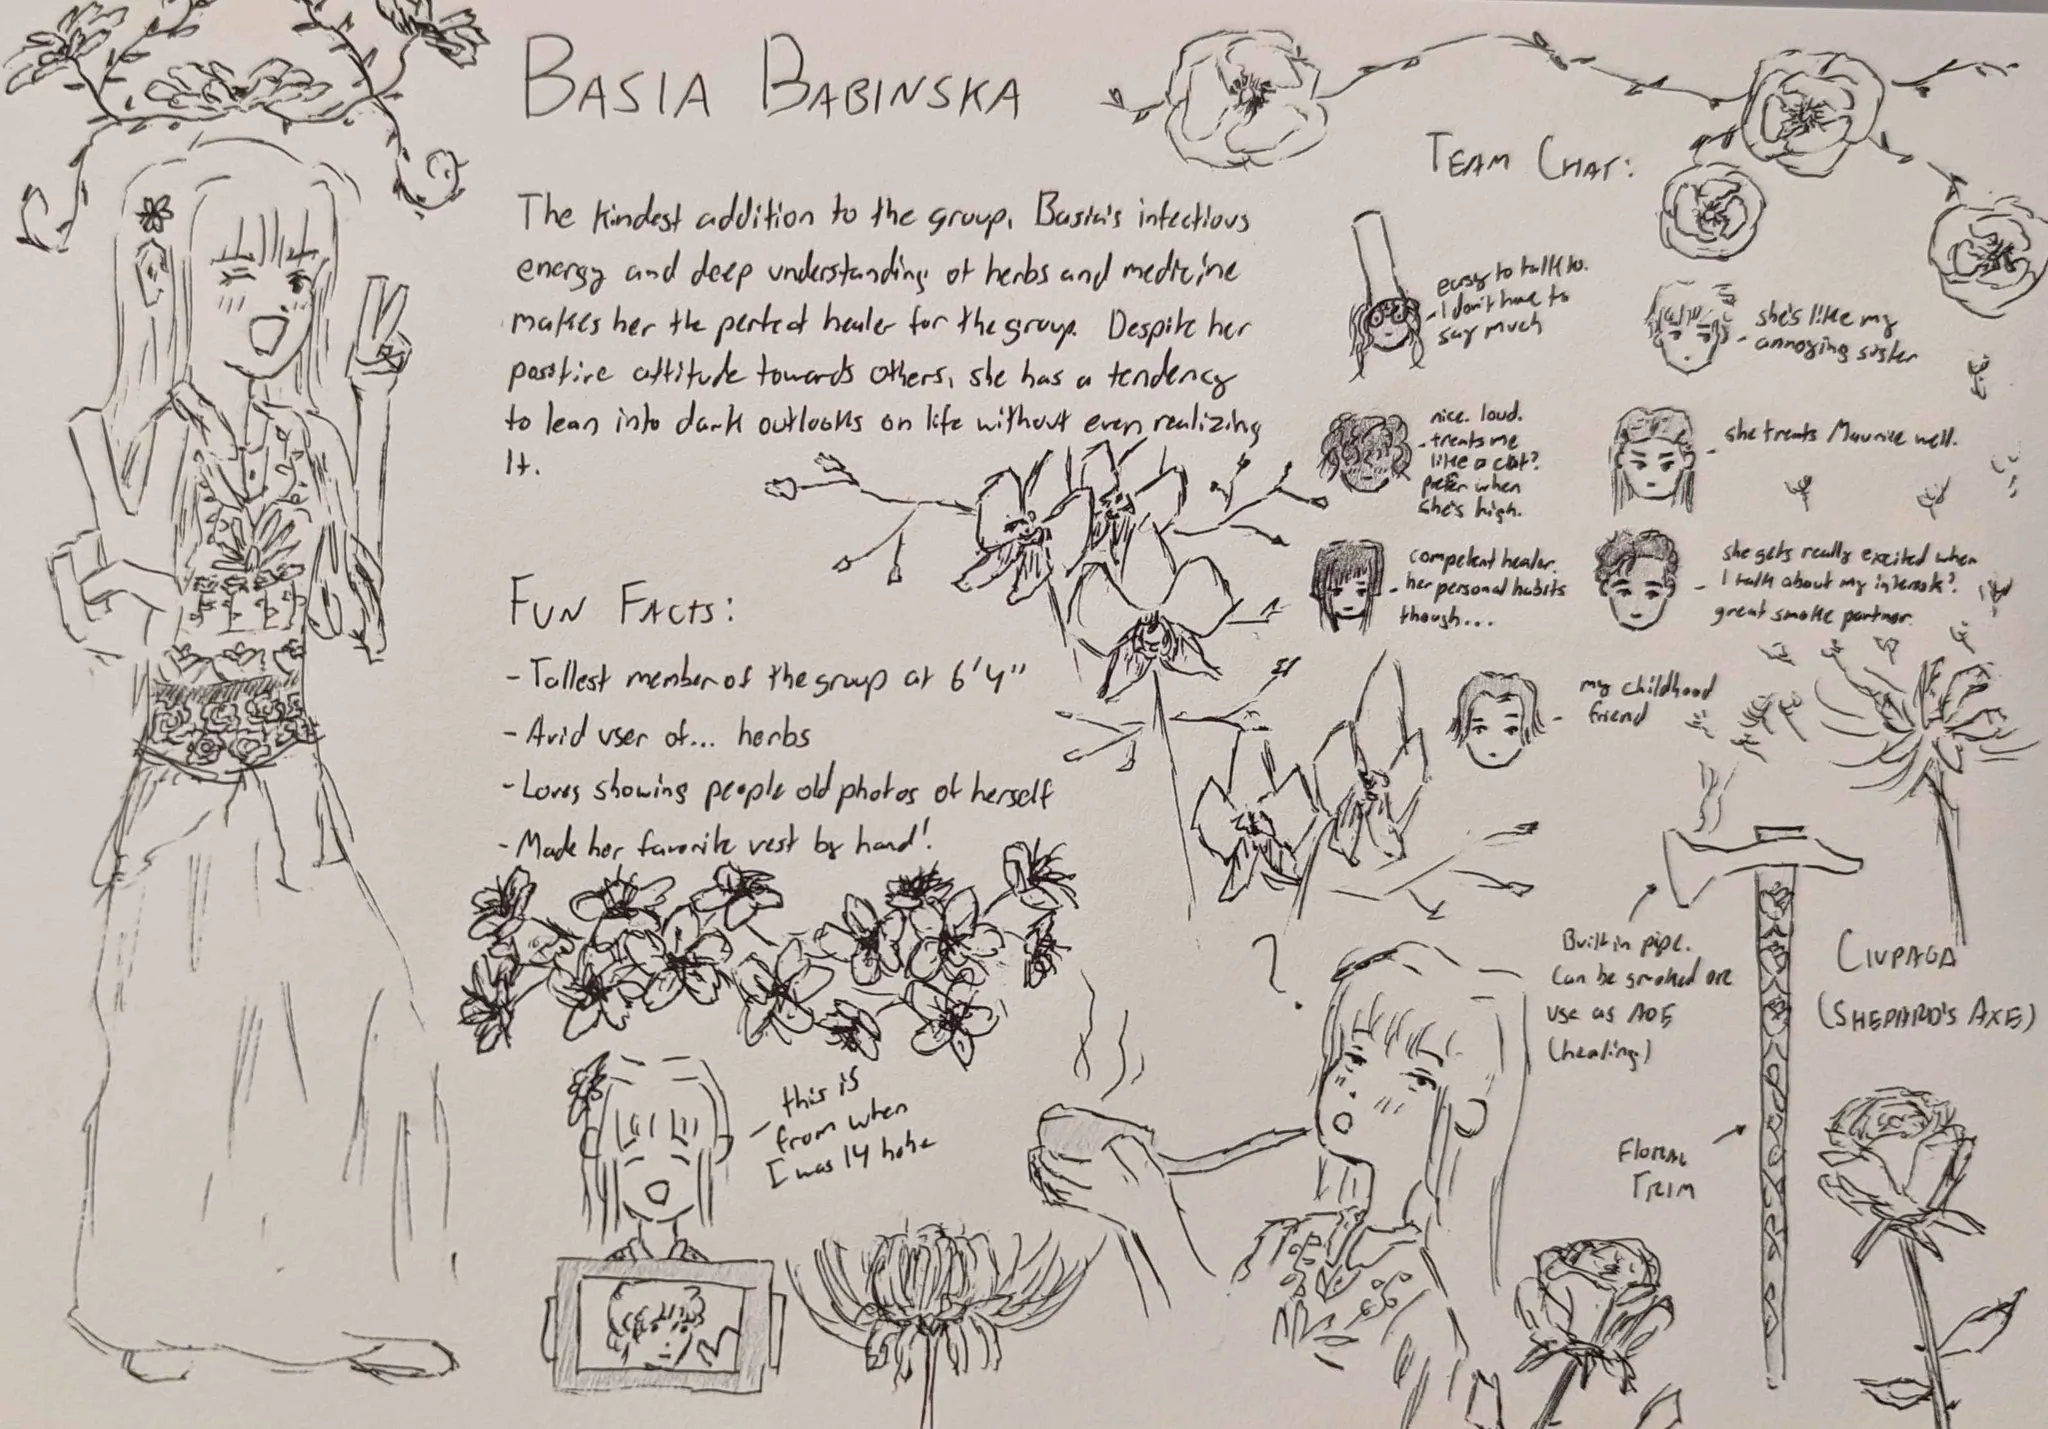 BASIA BABINSKA
The kindest addition to the group, Basia's infectious
energy and deep understanding of herbs and medicine
makes her the perfect healer for the group. Despite her
positive attitude towards others, she has a tendency
to lean into dark outlooks on life without even realizing
it.
FUN FACTS:
- Tallest member of the group at 6'4"
- Avid user of... herbs
- Loves showing people old photos of herself
- Made her favorite vest by hand!
- this is
from when
I was 14 hehe
TEAM CHAT:
easy to talk to.
- I don't have to
say much
she's like my
- annoying sister
nice. loud.
- treats me
like a cat?
prefer when
she's high.
- she treats Maurice well.
competent healer.
- her personal habits
though...
she gets really excited when
- I talk about my interests?
great smoke partner.
my childhood
- friend
?
Built in pipe.
Can be smoked or
use as AOE
(healing)
CIUPAGA
(SHEPARD'S AXE)
FLORAL
TRIM